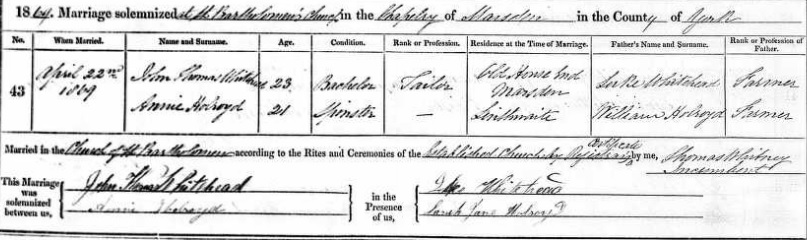 1869. Marriage solemnized at St Bartholomew's Church in the Chapelry of Marsden in the County of York
No. When Married. Name and Surname. Age. Condition. Rank or Profession. Residence at the Time of Marriage. Father's Name and Surname. Rank or Profession of Father.
43 April 22nd 1869 John Thomas Whitehead 23 Bachelor Tailor Old House End Marsden Luke Whitehead Farmer
Annie Holroyd 21 Spinster — Linthwaite William Holroyd Farmer
Married in the Church of St Bartholomew according to the Rites and Ceremonies of the Established Church, by Certificate by me, Thomas Whitney
Incumbent
This Marriage was solemnized between us, John Thomas Whitehead in the Presence of us, Whitehead
Annie Holroyd Sarah Jane Holroyd